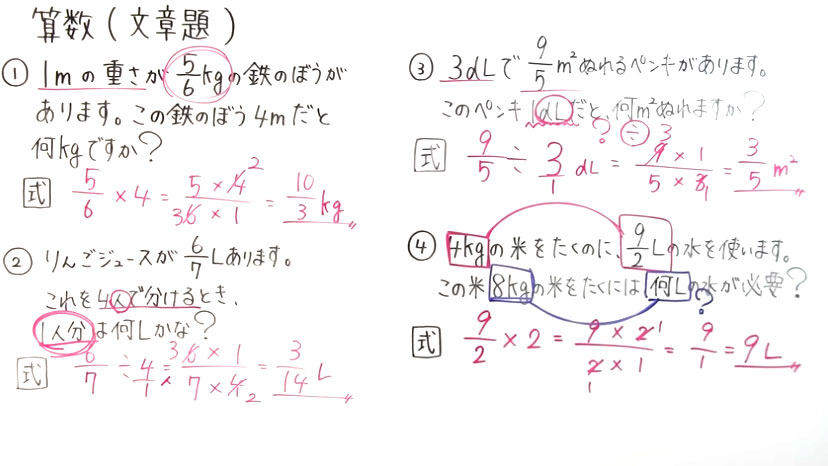 算数(文章題)
① 1mの重さが5/6kgの鉄のぼうが
あります。この鉄のぼう4mだと
何kgですか?
式 5/6 × 4 = 5×4/6×1 = 10/3 kg
2
3
② りんごジュースが6/7Lあります。
これを4人で分けるとき、
1人分は何Lかな?
式 6/7 ÷ 4/1 = 6×1/7×4 = 3/14 L
3
2
③ 3dLで9/5m²ぬれるペンキがあります。
このペンキ1dLだと、何m²ぬれますか?
? ÷
式 9/5 ÷ 3/1 dL = 9×1/5×3 = 3/5 m²
3
1
④ 4kgの米をたくのに、9/2Lの水を使います。
この米8kgの米をたくには何Lの水が必要?
?
式 9/2 × 2 = 9×2/2×1 = 9/1 = 9L
1
1